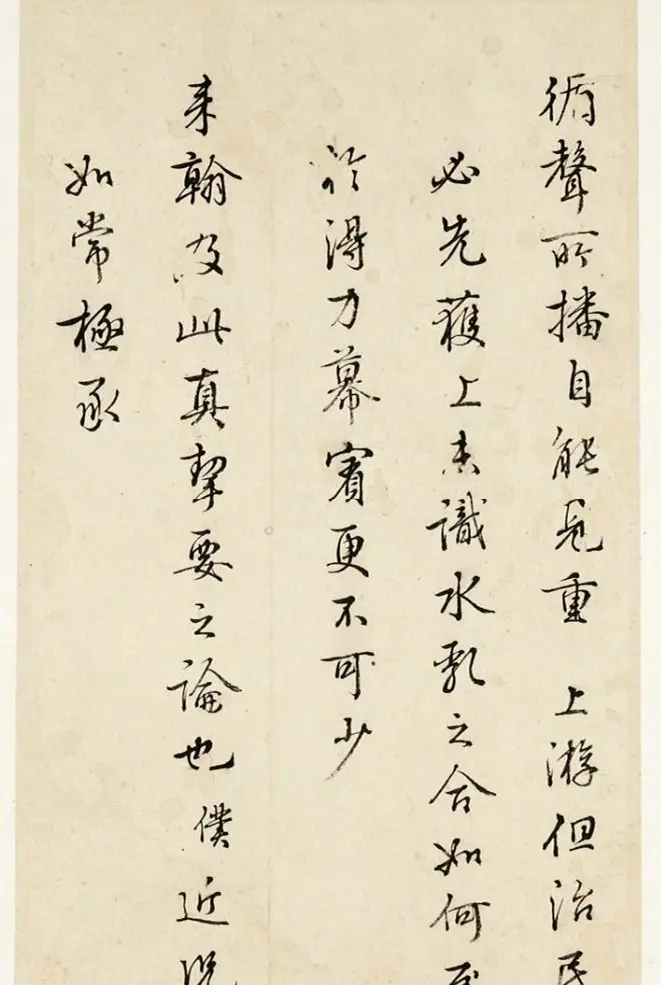 循聲所播自能見重 上游但治民
必先獲上未識水乳之合如何至
於得力幕賓更不可少
来翰及此真挈要之論也僕近況
如常極承